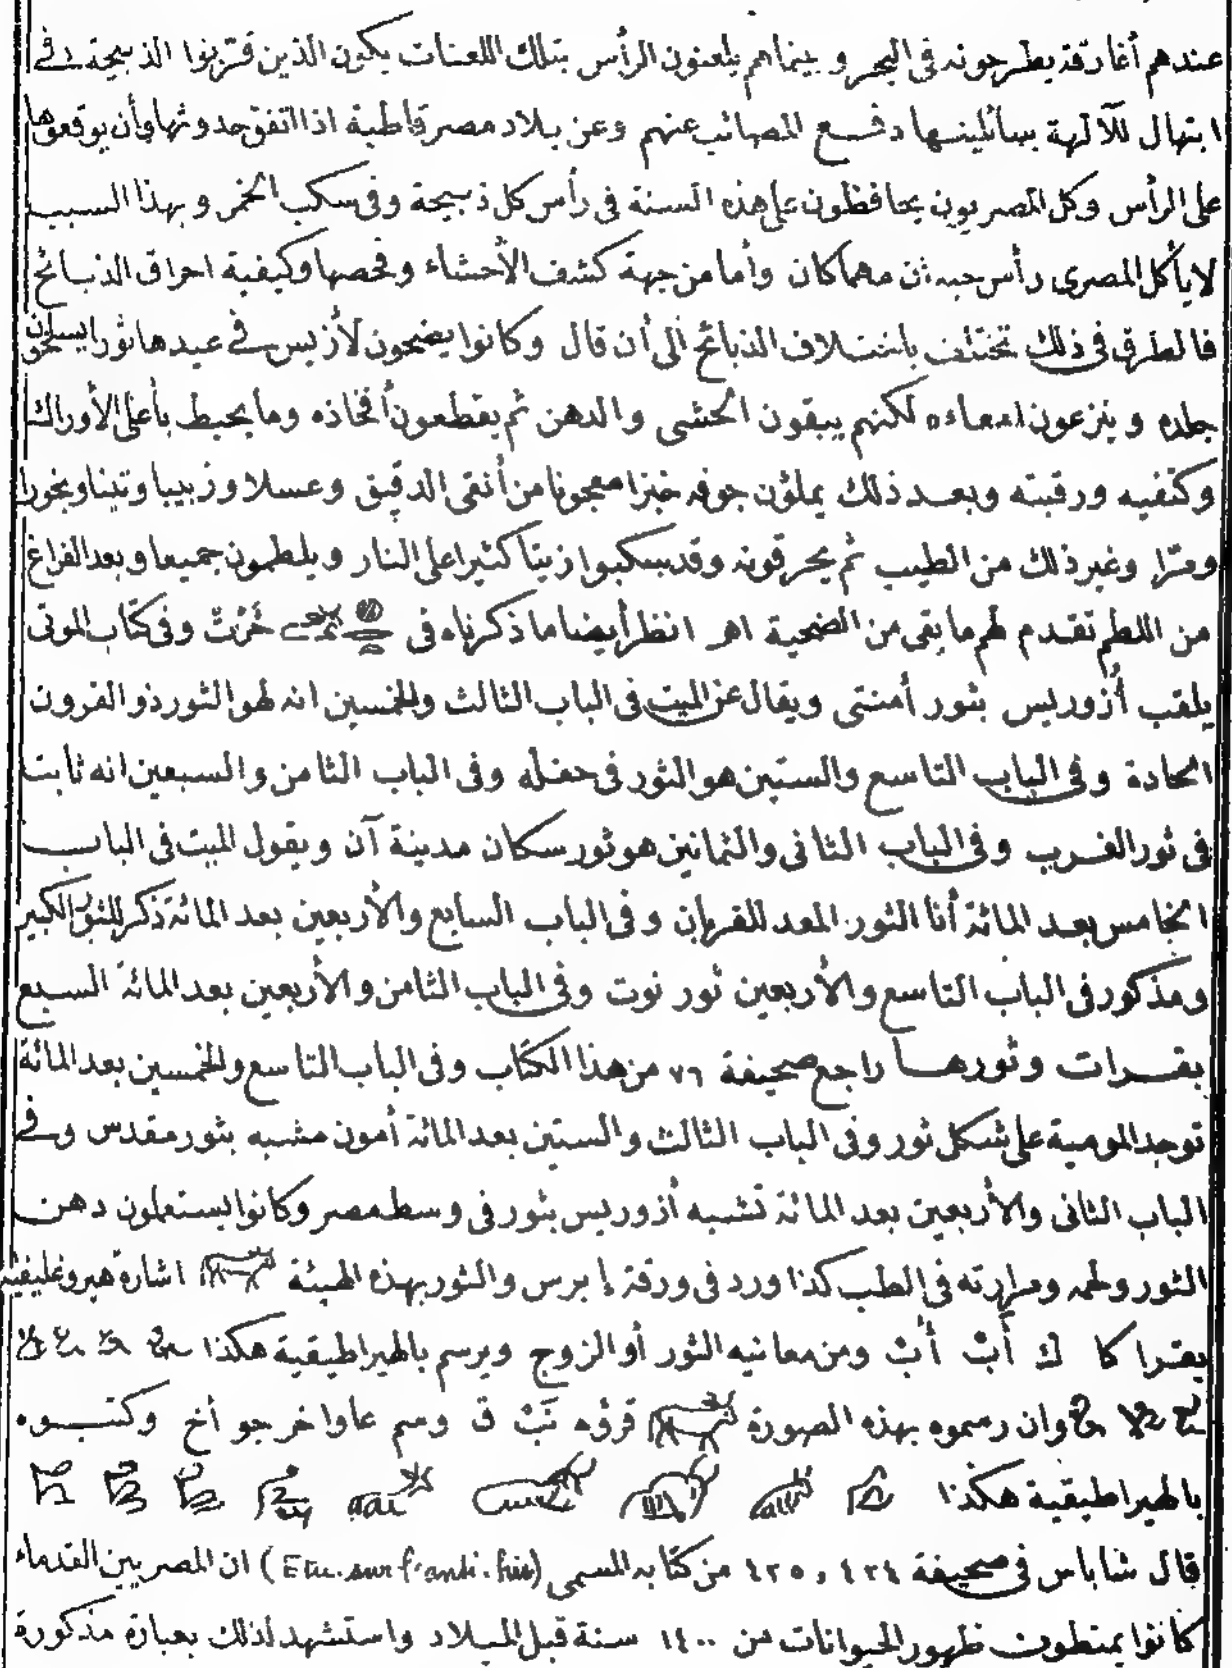 عندهم أغارقة يطرحونه فى البحر و بينماهم يلعنون الرأس بتلك اللعنات يكون الذين قرّبوا الذبيحة فى
ابتهال للآلهة يسائلينها دفع المصائب عنهم وعن بلاد مصر قاطبة اذا اتفق حدوثها وأن يوقعوها
على الرأس وكل المصريون يحافظون على هذه السنة فى رأس كل ذبيحة وفى سكب الخمر و بهذا السبب
لا يأكل المصرى رأس حيوان مهما كان وأما من جهة كشف الأحشاء وفحصها وكيفية احراق الذبائح
فالطرق فى ذلك تختلف باختلاف الذبائح الى أن قال وكانوا يضحون لأزيس فى عيدها ثورا يسلخون
جلده و ينزعون امعاءه لكنهم يبقون الحشى والدهن ثم يقطعون أفخاذه وما يحيط بأعلى الأوراك
وكتفيه ورقبته وبعد ذلك يملؤن جوفه خبزا معجونا من أنقى الدقيق وعسلا وزبيبا وتينا وبخورا
ومرّا وغير ذلك من الطيب ثم يحرقونه وقد سكبوا زيتا كثيرا على النار ويلطمون جميعا وبعد الفراغ
من اللطم تقدم لهم ما بقى من الضحية اهـ انظر أيضا ما ذكرناه فى خَرْتْ وفى كتاب الموتى
يلقب أزوريس بثور أمنتى ويقال عن الميت فى الباب الثالث والخمسين انه لهو الثور ذو القرون
الحادة وفى الباب التاسع والستين هو الثور فى حقله وفى الباب الثامن والسبعين انه ثابت
فى ثور الغرب وفى الباب الثانى والثمانين هو ثور سكان مدينة آن ويقول الميت فى الباب
الخامس بعد المائة أنا الثور المعد للقربان وفى الباب السابع والأربعين بعد المائة ذكر للثور الكبير
ومذكور فى الباب التاسع والأربعين ثور نوت وفى الباب الثامن والأربعين بعد المائة السبع
بقرات وثورها راجع صحيفة ٧٦ من هذا الكتاب وفى الباب التاسع والخمسين بعد المائة
توجد المومية على شكل ثور وفى الباب الثالث والستين بعد المائة أمون مشبه بثور مقدس وفى
الباب الثانى والأربعين بعد المائة تشبه أزوريس بثور فى وسط مصر وكانوا يستعملون دهن
الثور ولحمه ومرارته فى الطب كذا ورد فى ورقة إبرس والثور بهذه الهيئة اشارة هيروغليفية
يقرا كا ك أَبْ أُبْ ومن معانيه الثور أو الزوج ويرسم بالهيراطيقية هكذا
وان رسموه بهذه الصورة قرؤه نَبْ ق وسم عاوا خر جو أخ وكتبوه
بالهيراطيقية هكذا
قال شاباس فى صحيفة ٤٢٤ و ٤٢٥ من كتابه المسمى (Etu. sur l'anti. his) ان المصريين القدماء
كانوا يمتطون ظهور الحيوانات من ١٤٠٠ سنة قبل الميلاد واستشهد لذلك بعبارة مذكورة